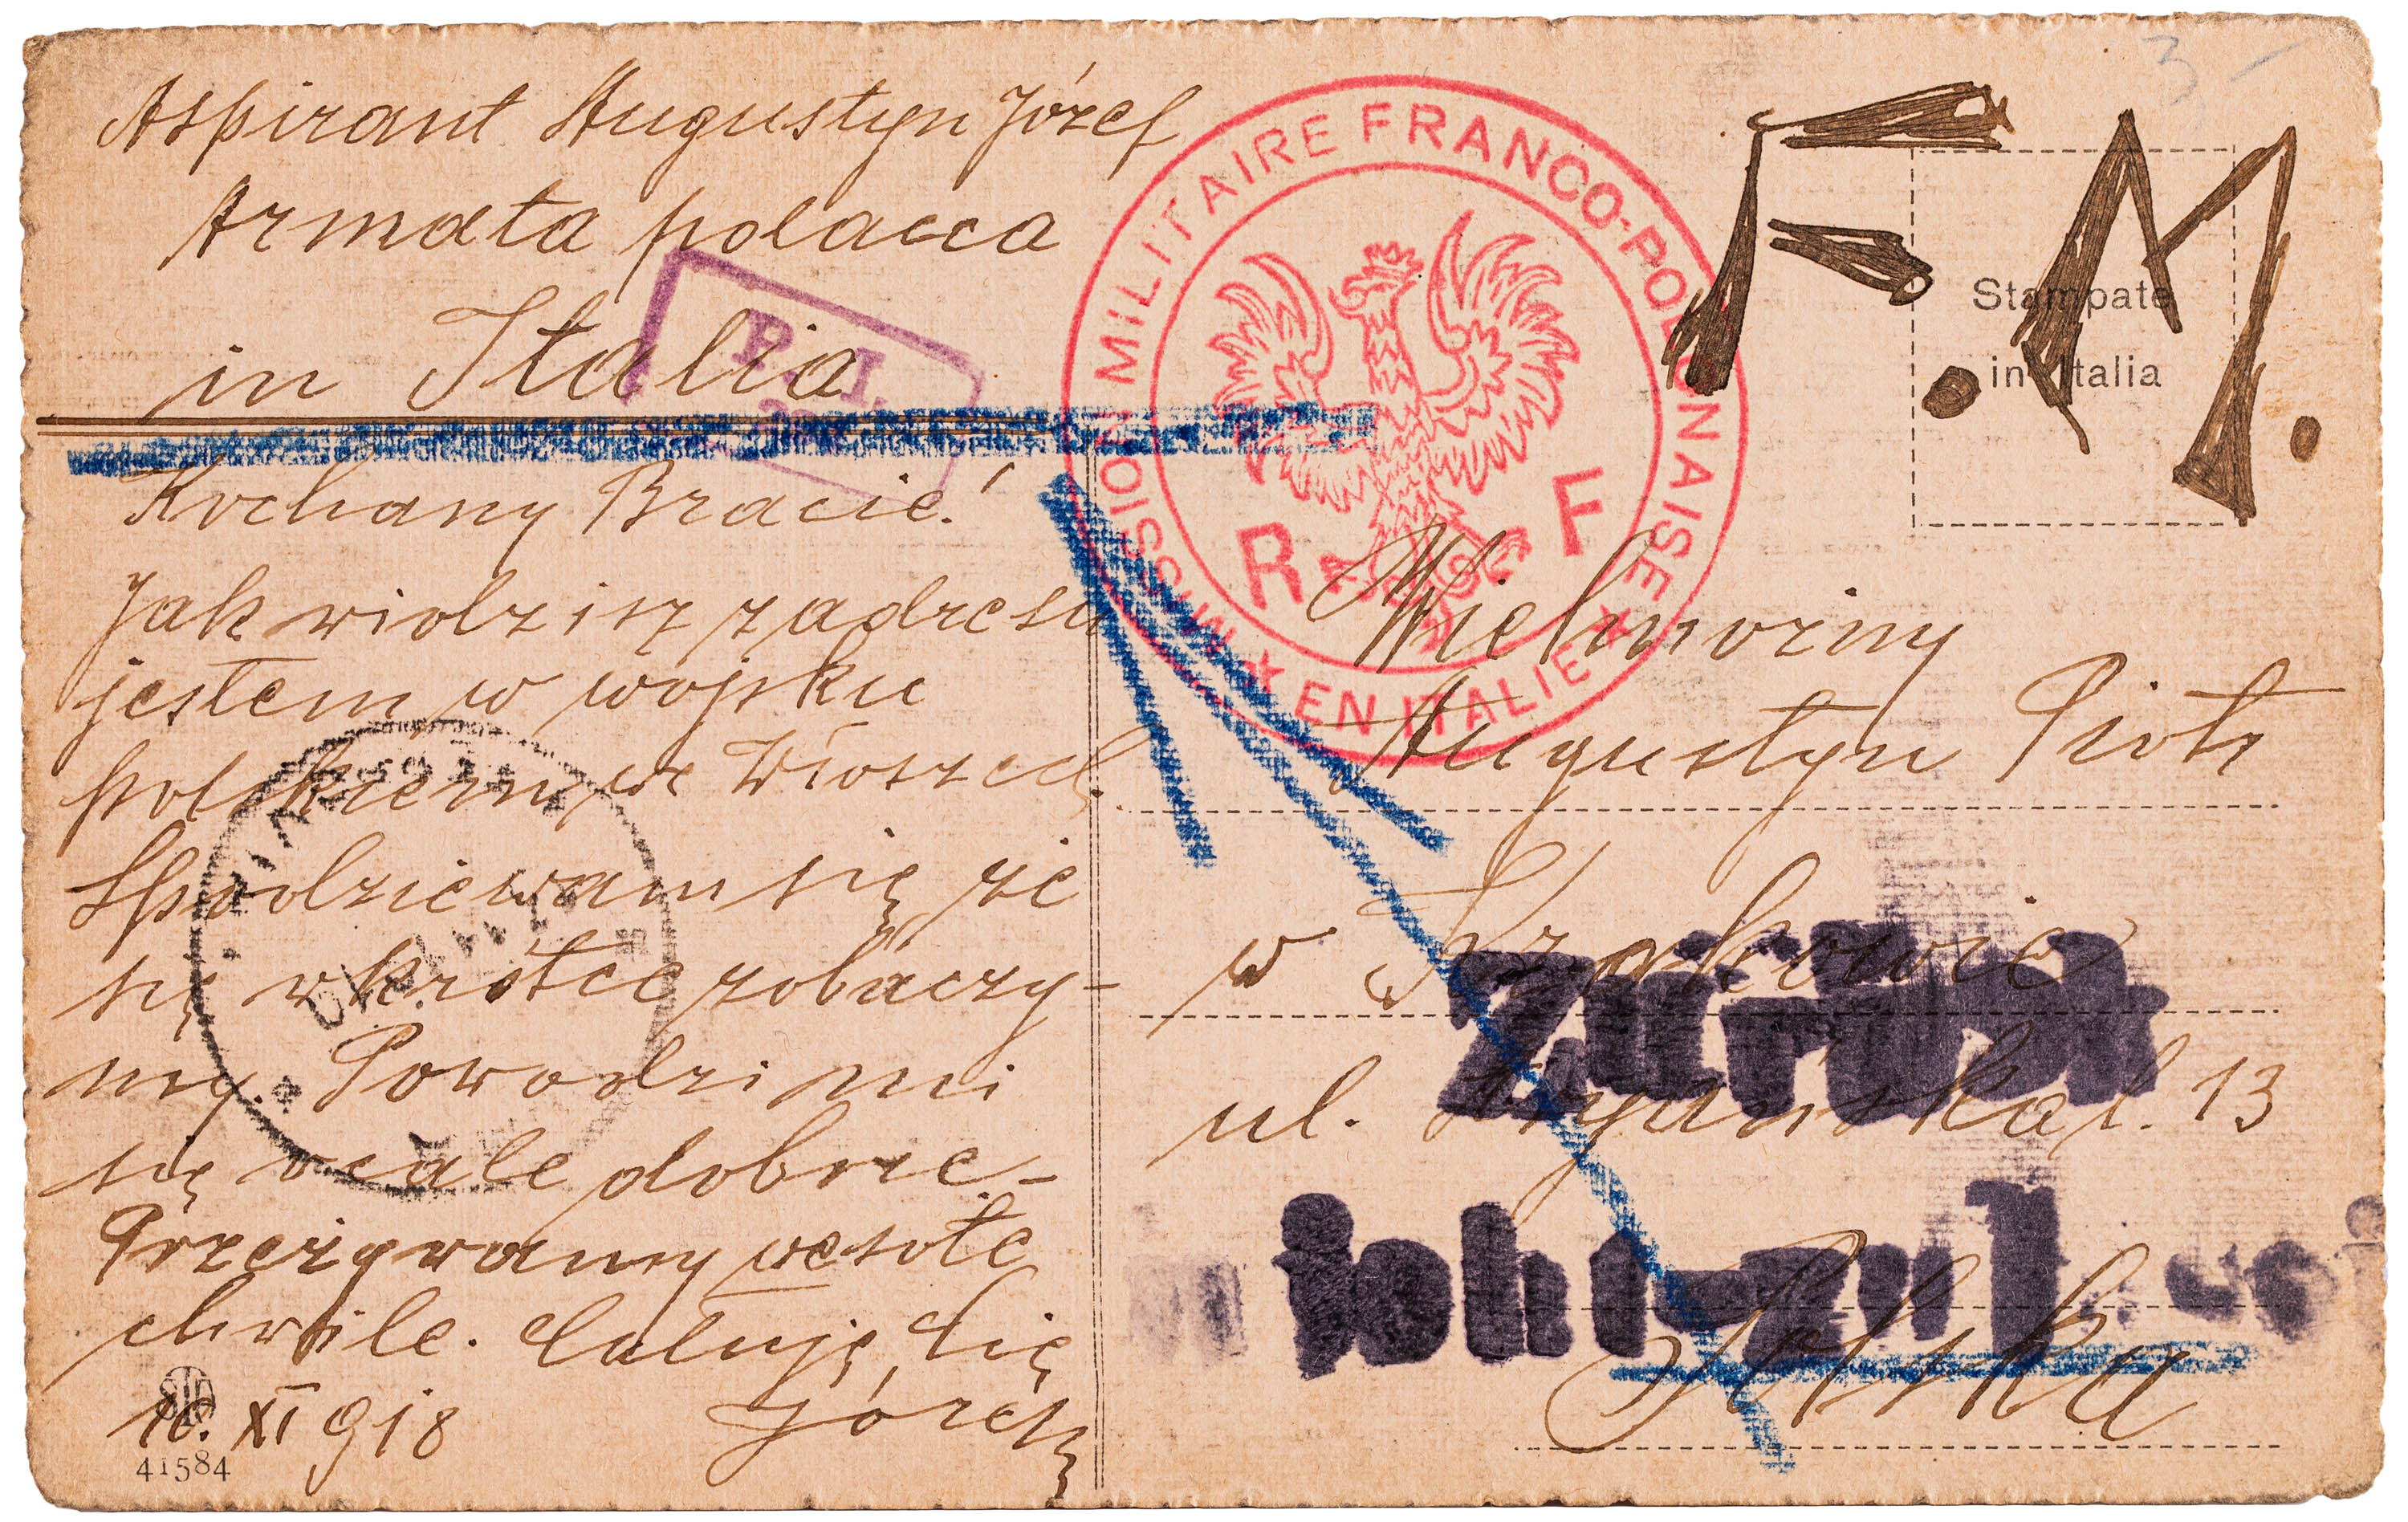 Aspirant Augustyn Józef
Armata polacca
in Italia
P. I.
Kochany Bracie!
Jak widzisz z adresu
jestem w wojsku
polskiem we Włoszech.
Spodziewam się, że
się wkrótce zobaczy-
my. Powodzi mi
się wcale dobrze -
Przeżywamy wesołe
chwile. Całuję Cię
Józek
16. XI 918
41584
MISSION MILITAIRE FRANCO-POLONAISE
EN ITALIE
R F
F. M.
3 -
Stampate
in Italia
Wielmożny
Augustyn Piotr
w Krakowie
ul. l. 13
Polska
Zurück